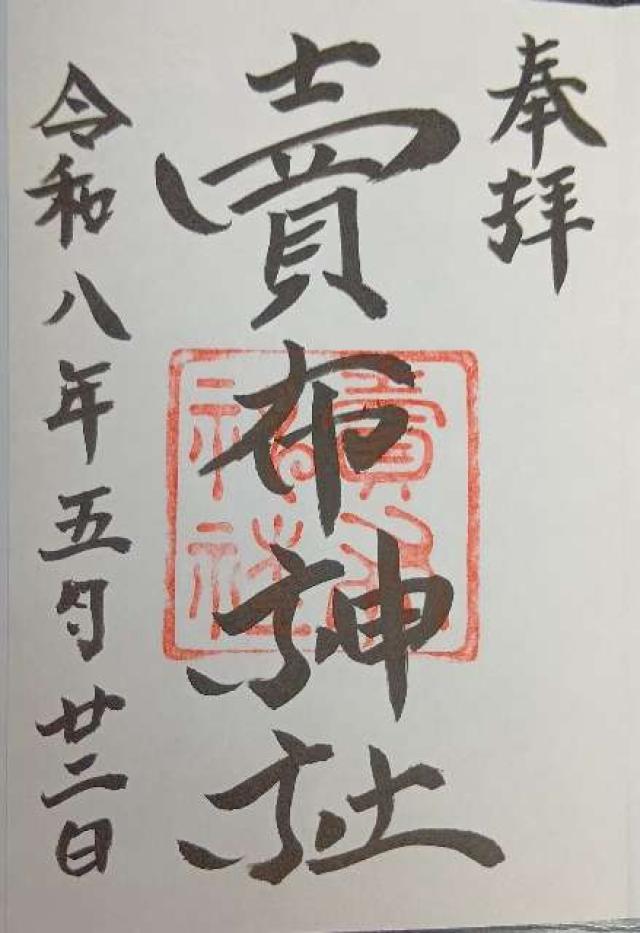 奉拝
賣布神社
令和八年五月廿二日